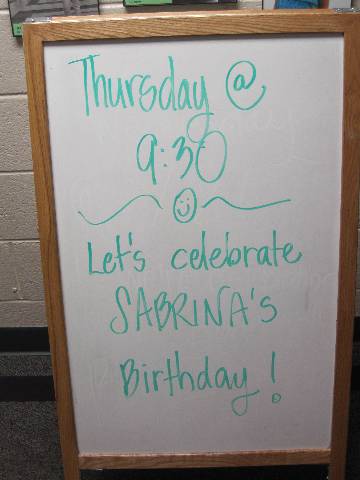 Thursday @
9:30
Let's celebrate
SABRINA's
Birthday!